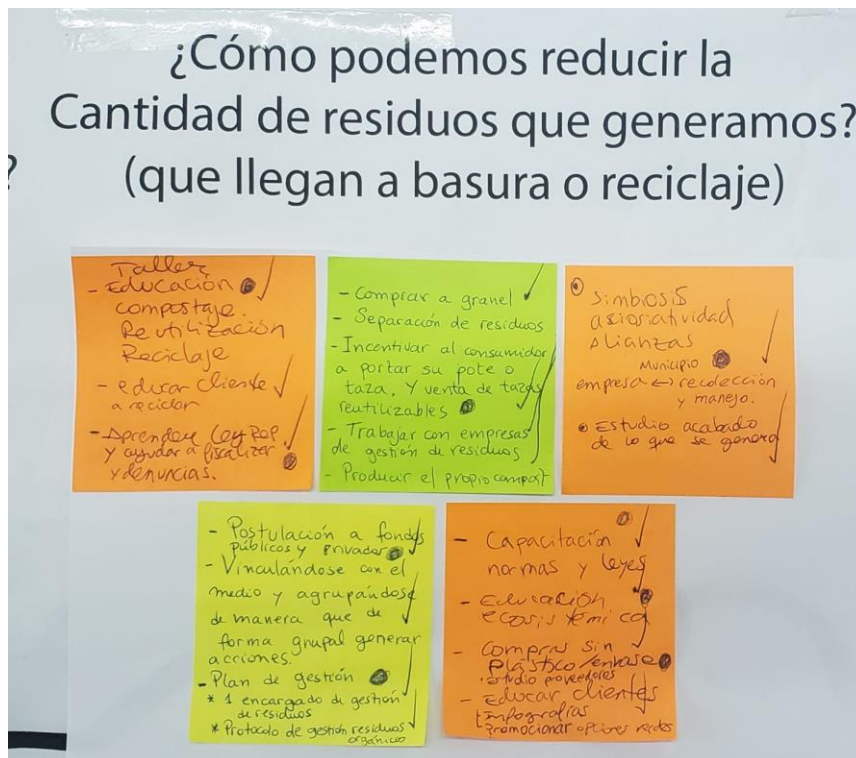 ¿Cómo podemos reducir la
Cantidad de residuos que generamos?
(que llegan a basura o reciclaje)
?
Taller
- Educación
compostaje.
Reutilización
Reciclaje
- educar cliente
a reciclar
- Aprender Ley REP
y ayudar a fiscalizar
y denuncias.
- Comprar a granel
- Separación de residuos
- Incentivar al consumidor
a portar su pote o
taza. Y venta de tazas
reutilizables
- Trabajar con empresas
de gestión de residuos
- Producir el propio compost
Simbiosis
asiosiatividad
Alianzas
Municipio
empresa ↔ recolección
y manejo.
Estudio acabado
de lo que se genera
- Postulación a fondos
públicos y privados
- Vinculándose con el
medio y agrupándose
de manera que de
forma grupal generar
acciones.
- Plan de gestión
* 1 encargado de gestión
de residuos
* Protocolo de gestión residuos
orgánico
- Capacitación
normas y leyes
- Educación
ecosistémica
- Compras sin
plástico/envase
· estudio proveedores
- Educar clientes
Infografías
Promocionar opciones